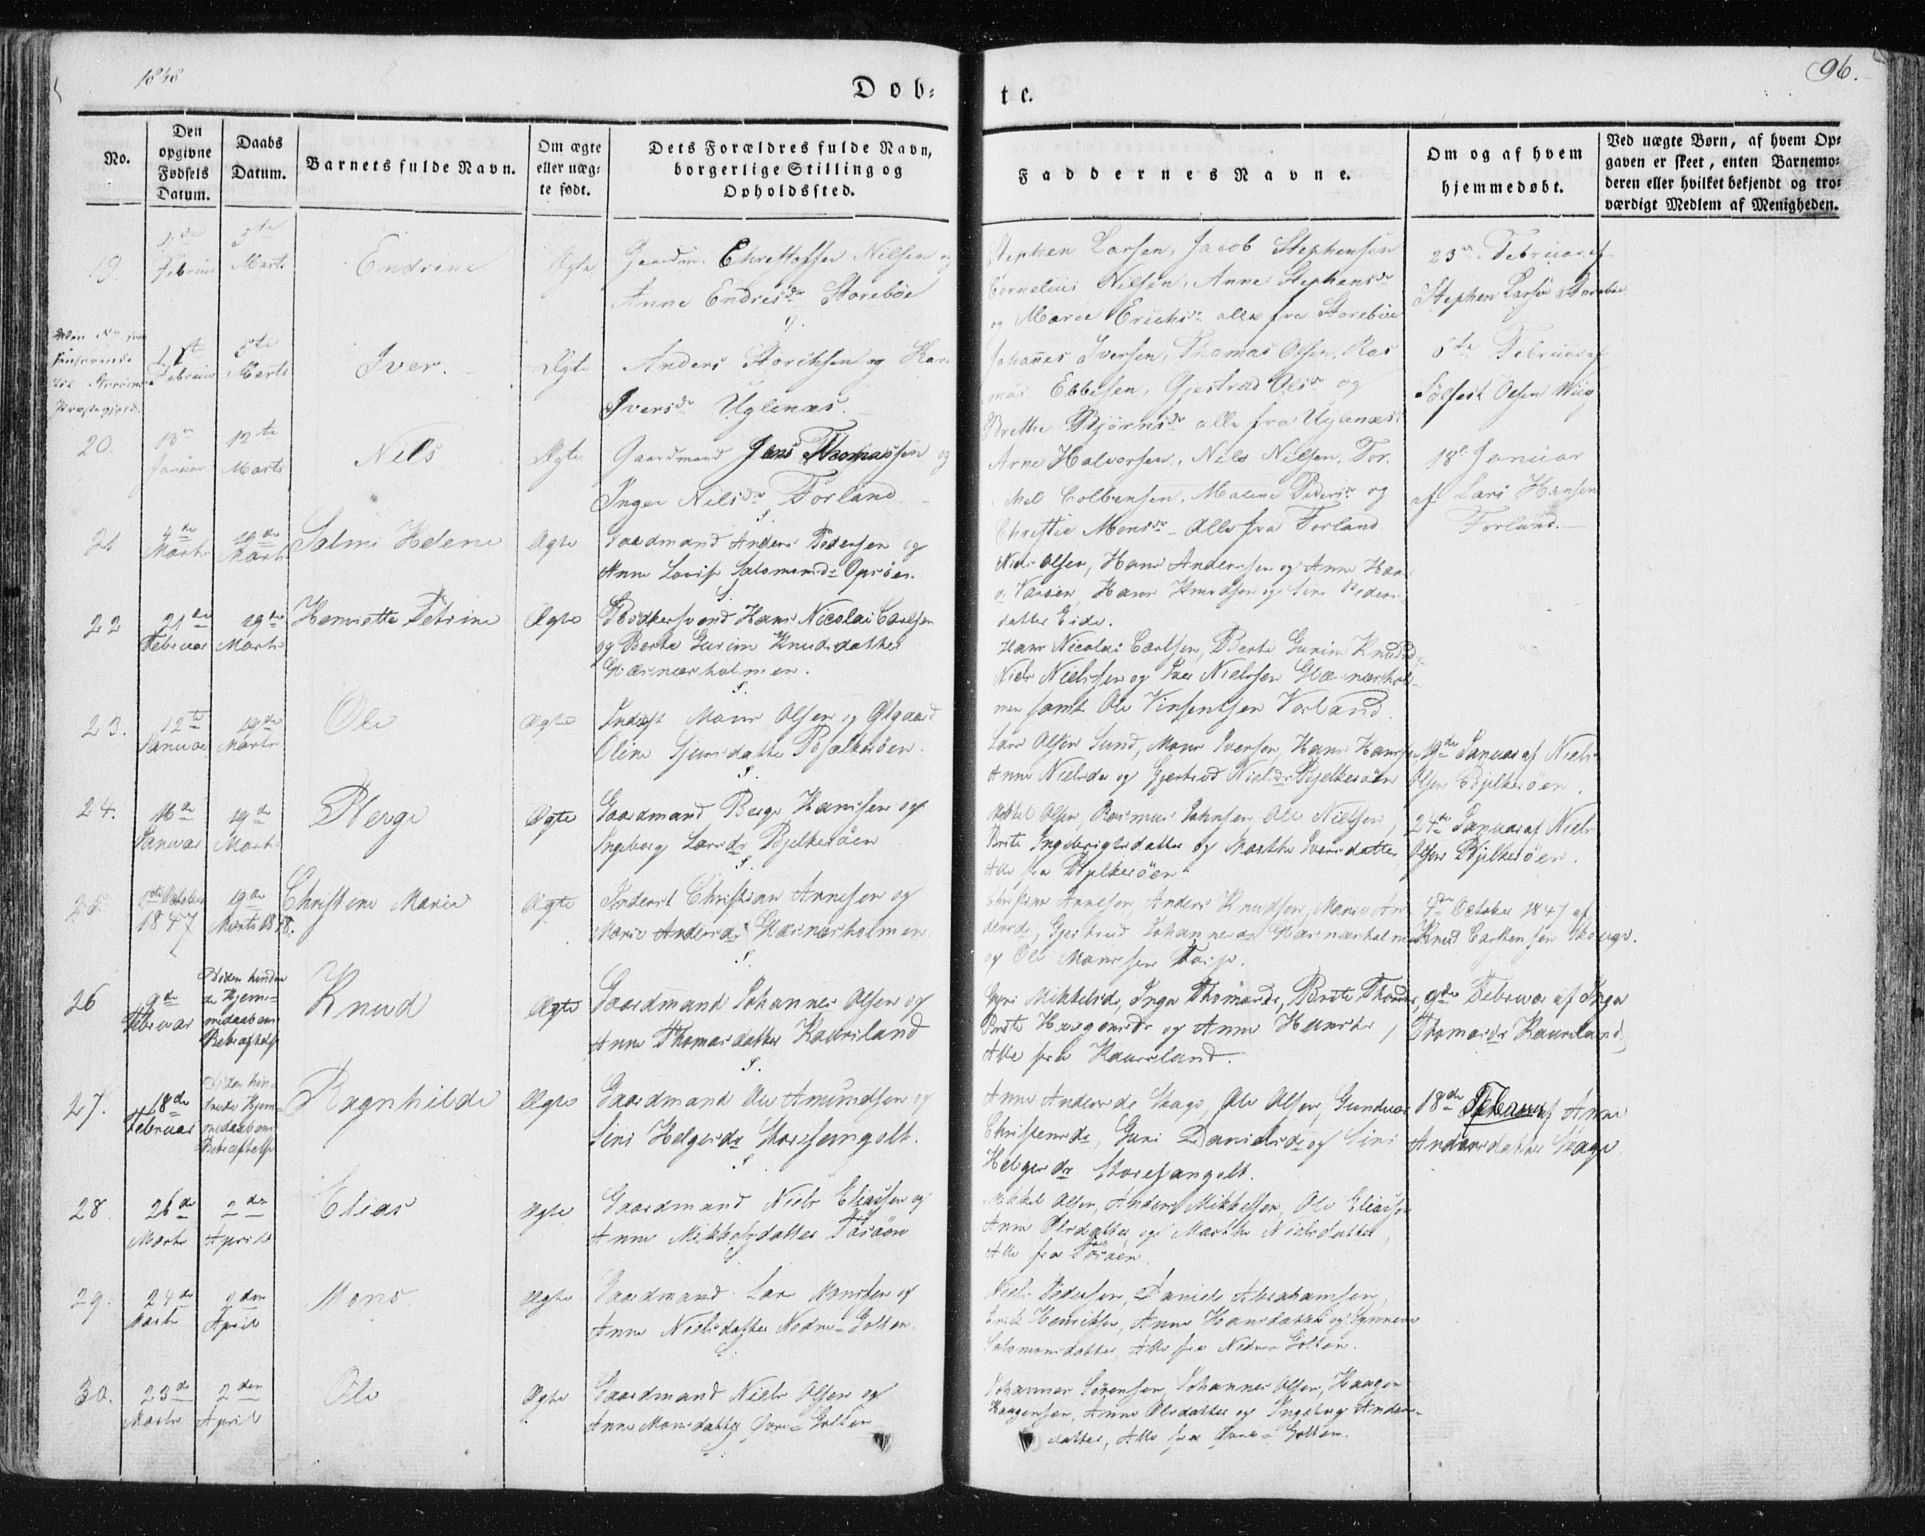 1848
Døb-
te.
96.
No.
Den
opgivne
Fødsels
Datum.
Daabs
Datum.
Barnets fulde Navn.
Om ægte
eller uæg-
te født.
Dets Forældres fulde Navn,
borgerlige Stilling og
Opholdssted.
Faddernes Navne.
Om og af hvem
hjemmedøbt.
Ved uægte Børn, af hvem Op-
gaven er skeet, enten Barnemo-
deren eller hvilket bekjendt og tro-
værdigt Medlem af Menigheden.
19.
Februar
5te
Marts
Endrine
Ægte
Gaardm. Christoffer Nilsen og
Anne Endresdr Storebøe
Stephen Larsen, Jacob Stephensen
Cornelius Nilsen, Anne Stephensdr
og Marie Erichsdr alle fra Storebøe
23de Februar af
Stephen Larsen Storebøe
Februar
5te
Marts
Iver.
Ægte
Anders
og Kari
Iversdr Uglenæs.
Johannes Iversen, Thomas Olsen, Ras
mus Ebbesen, Gjertrud Olsdr og
Brethe Bjørnsdr alle fra Uglenæs.
5te Februar af
Olsen Wiig
20.
13de
Januar
12te
Marts
Nils
Ægte
Gaardmand Jens Thomassen og
Inger Nilsdr Forland
Arne Halvorsen, Nils Nilsen, Tor.
Colbensen, Malene Pedersdr og
Christie Monsdr alle fra Forland
18de Januar
af Lars Hansen
Forland.
21
4de
Marts
19de
Marts
Salmi Helene
Ægte
Gaardmand Anders Pedersen og
Anne Lovise Salomonsdr
Niels Olsen, Hans Andersen og Anne Han
Hans Knudsen og Sini Peders
datter Eide.
22
21de
Februar
19de
Marts
Henriette Petrine
Ægte
Bødkersvend Hans Nicolai Carlsen
og Berthe Gurine Knudsdatter
Glæsnæsholmen.
Hans Nicolai Carlsen, Berte Gurine Knudsdr
Niels Nielssen og Iver Nielssen Glæsnæshol-
men samt Ole Vinsentsen Vorland.
23.
12te
Januar
19de
Marts
Ole
Ægte
Inderst Mons Olsen og
Oline Sjursdatter Bjelkerøen.
Lars Olsen Sund, Mons Iversen, Hans Hansen
Anne Nielsdr og Gjertrud Nielsdr Bjelkerøen
19de Januar af Niels
Olsen Bjelkerøen.
24.
16de
Januar
19de
Marts
Berge
Ægte
Gaardmand Berge Hansen og
Ingeborg Larsdr Bjelkerøen
Mikkel Olsen, Rasmus Johnsen, Ole Nielsen,
Brite Ingebrigtsdatter og Marthe Iversdatter
Alle fra Bjelkerøen
24de Januar af Niels
Olsen Bjelkerøen.
25.
October
1847
19de
Marts 1848.
Christine Marie
Ægte
Inderst Christian Arnesen og
Marie Andersdr Glæsnæsholmen.
Christian Arnesen, Anders Knudsen, Marie An
dersdr, Gjertrud Johannesdr Glæsnæsholmen
og Ole Monssen
4de October 1847 af
Knud
26
9de
Februar
Siden hindre
de Hjem-
medaabens
Bekræftelse
Knud
Ægte
Gaardmand Johannes Olsen og
Anne Thomasdatter Kausland
Guri Mikkelsdr, Inga Thomasdr, Brite Thomasdr
Brite Haagensdr og Anne Hansdr,
Alle fra Kausland.
9de Februar af Inga
Thomasdr Kausland
27.
18de
Februar
Siden hin
drede Hjem-
medaabens
Bekræftelse
Ragnhilde
Ægte
Gaardmand Ole Amundsen og
Sini Helgesdr Storesangolt.
Anne Andersdr Skage, Ole Olsen, Gunduar
Christensdr, Guri Danielsdr og Sini
Helgesdr Storesangolt.
18de Februar af Anne
Andersdatter Skage
28.
26de
Marts
2den
April
Elias
Ægte
Gaardmand Niels Eliassen og
Anne Mikkelsdatter Tøsøen
Mikkel Olsen, Anders Mikkelsen, Ole Eliassen
Anne Olsdatter og Marthe Nielsdatter,
Alle fra Tøsøen.
29.
24de
Marts
2den
April
Mons
Ægte
Gaardmand Lars Monssen og
Anne Nielsdatter Nedre-Golten.
Niels Pedersen, Daniel Abrahamsen,
Erik Henriksen, Anne Hansdatter og Synneve
Salomonsdatter, Alle fra Nedre Golten.
30.
23de
Marts
2den
April
Ole
Ægte
Gaardmand Niels Olsen og
Anne Monsdatter Øvre-Golten
Johannes Sørensen, Johannes Olsen, Haagen
Haagensen, Anne Olsdatter og Ingeborg Anders-
datter, Alle fra Øvre-Golten.